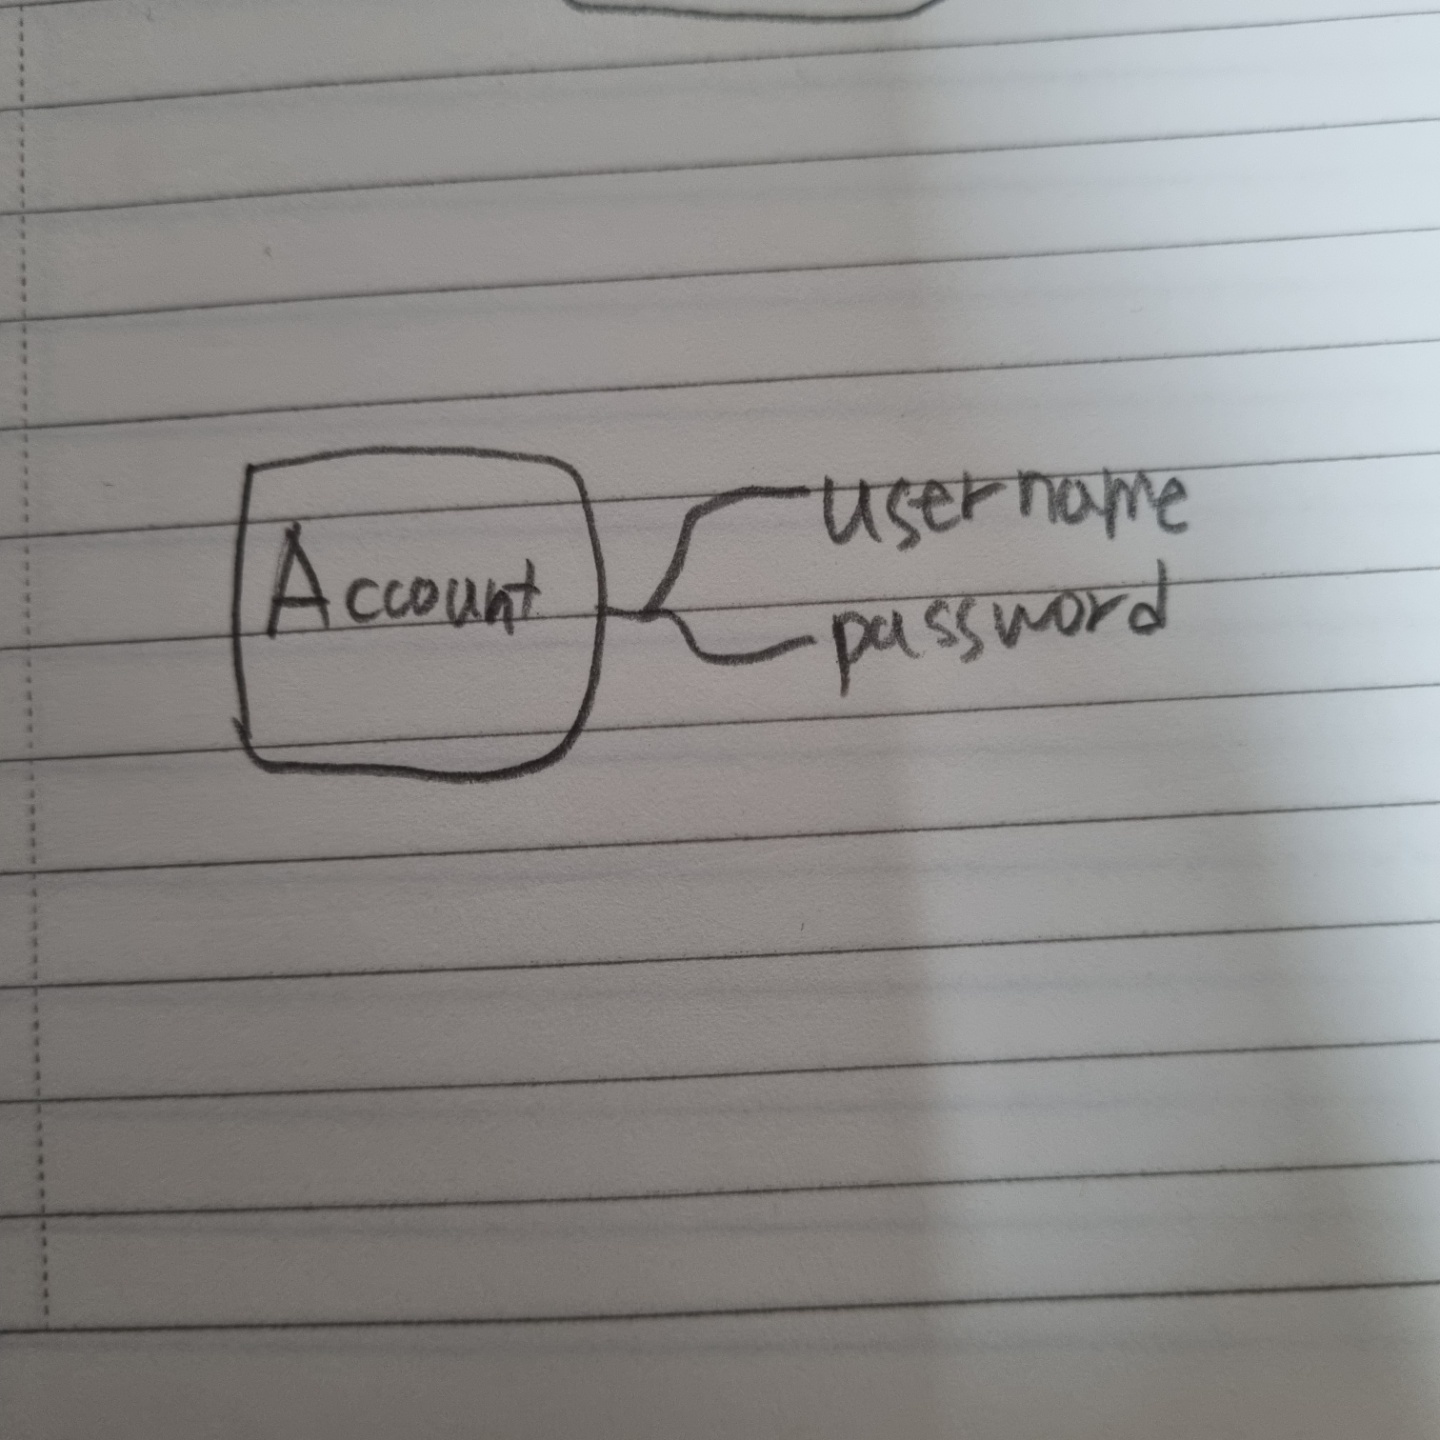 Account
username
password